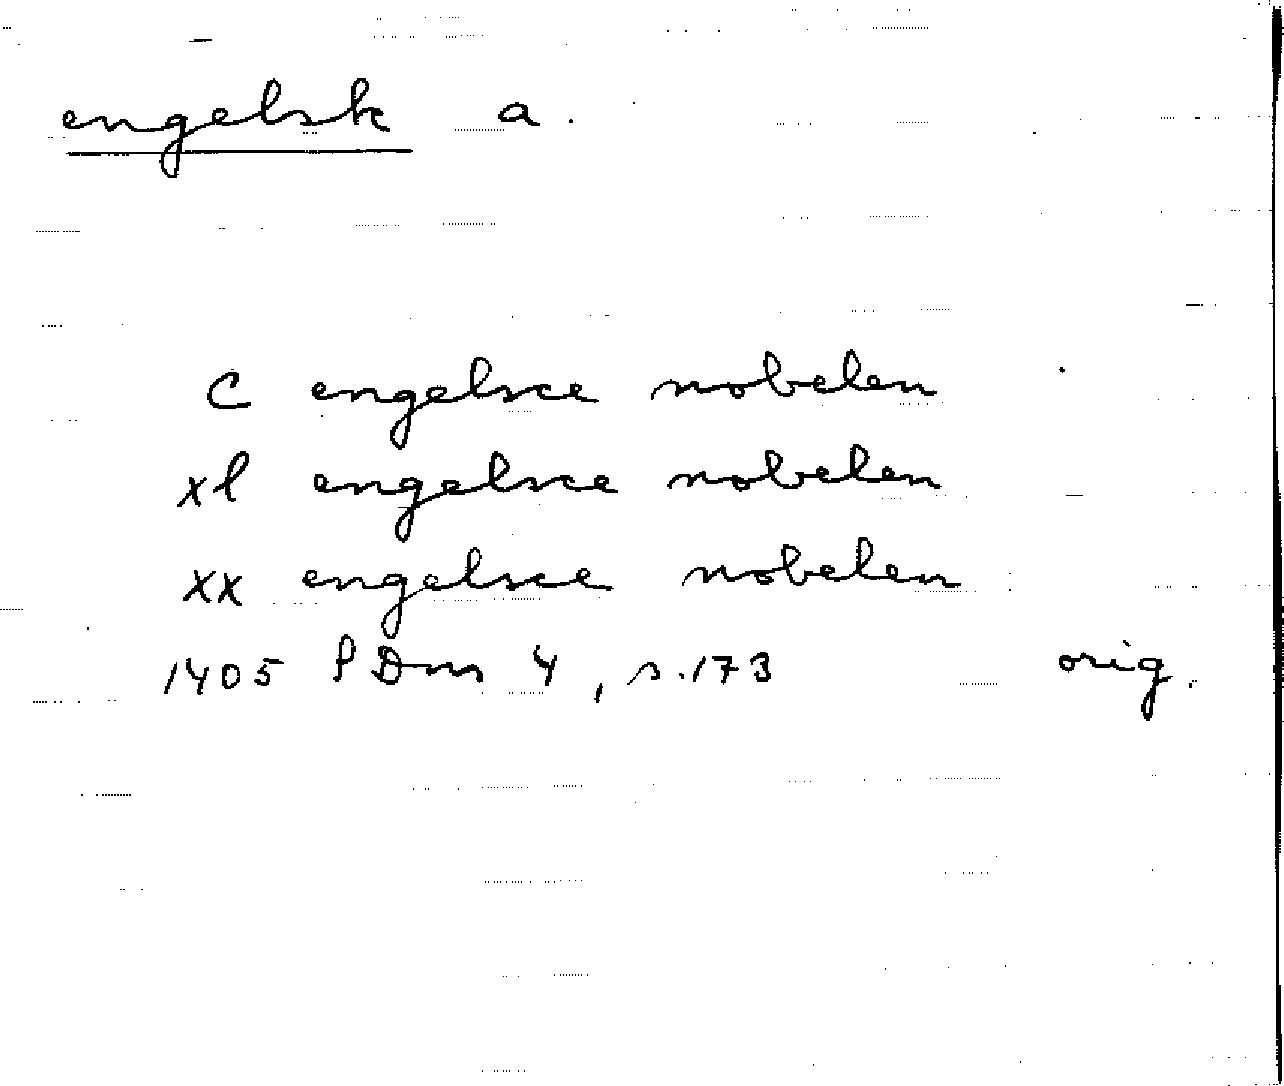 engelsk a.
C engelsce nobelen
xl engelsce nobelen
xx engelsce nobelen
1405 PDm 4, s. 173 orig.